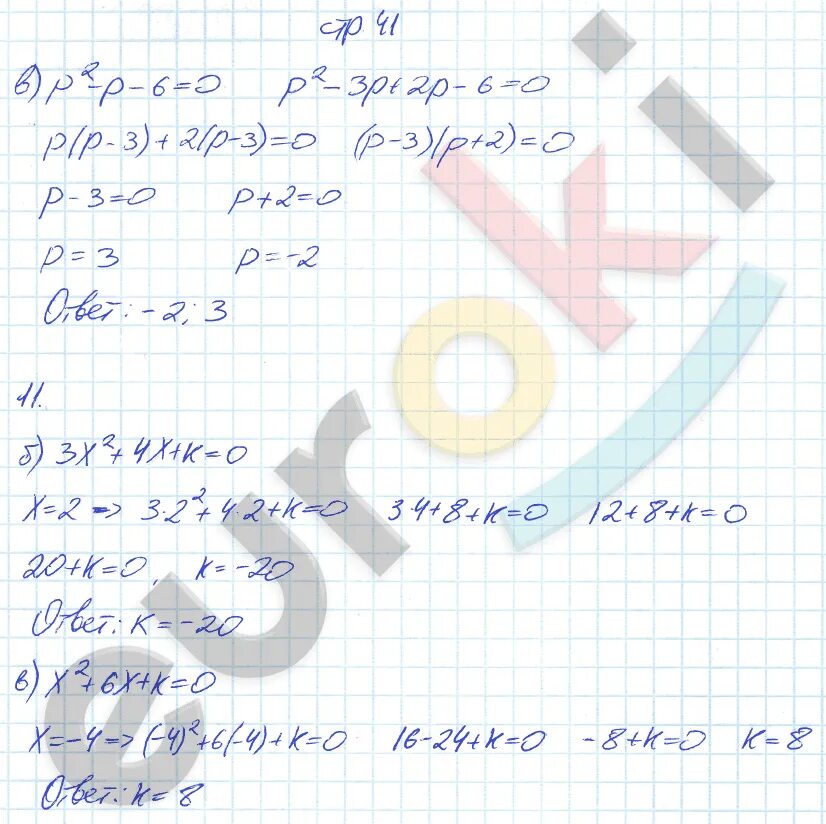 стр 41
в) p²-p-6=0 p²-3p+2p-6=0
p(p-3)+2(p-3)=0 (p-3)(p+2)=0
p-3=0 p+2=0
p=3 p=-2
Ответ: -2; 3
11.
б) 3x²+4x+k=0
x=2 => 3·2²+4·2+k=0 3·4+8+k=0 12+8+k=0
20+k=0, k=-20
Ответ: k=-20
в) x²+6x+k=0
x=-4=>(-4)²+6(-4)+k=0 16-24+k=0 -8+k=0 k=8
Ответ: k=8
euroki